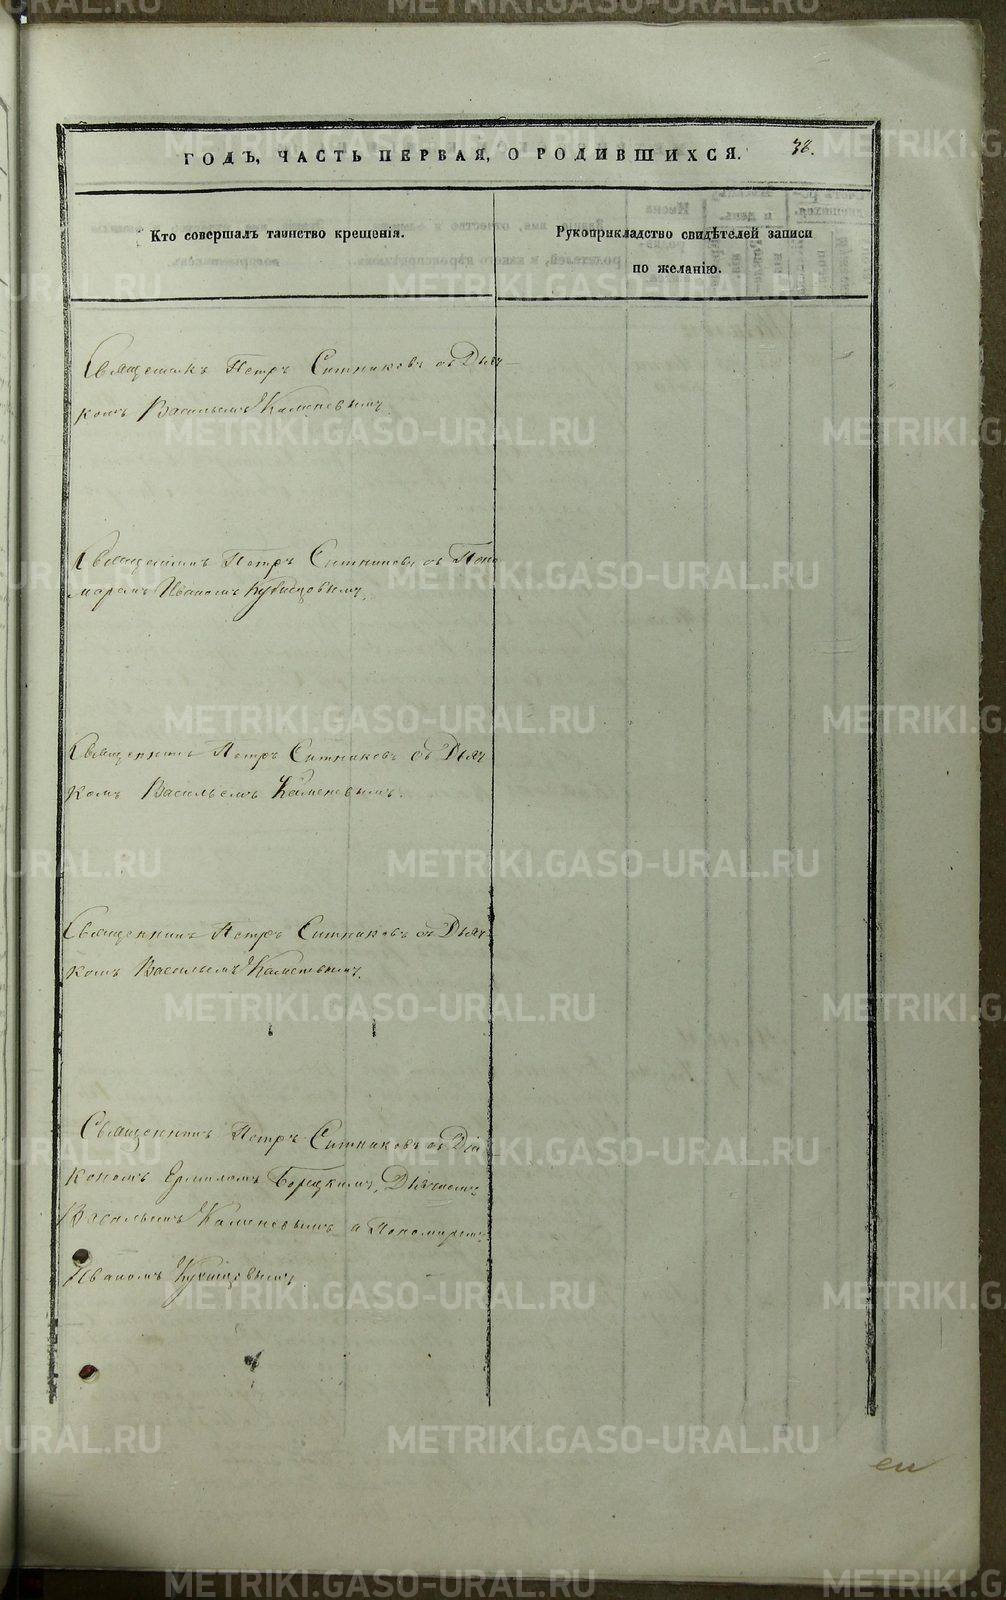 ГОДЪ, ЧАСТЬ ПЕРВАЯ, О РОДИВШИХСЯ.
38.
Кто совершалъ таинство крещенія.
Рукоприкладство свидѣтелей записи
по желанію.
Священникъ Петръ Ситниковъ съ Дьяч-
комъ Васильемъ Каменевымъ.
Священникъ Петръ Ситниковъ съ Поно
маремъ Иваномъ
Священникъ Петръ Ситниковъ съ Дьяч
комъ Васильемъ Каменевымъ.
Священникъ Петръ Ситниковъ съ Дьяч
комъ Васильемъ Каменевымъ.
Священникъ Петръ Ситниковъ съ Діа
кономъ Ермиломъ Дьячкомъ
Васильемъ Каменевымъ и Пономаремъ
Иваномъ
METRIKI.GASO-URAL.RU